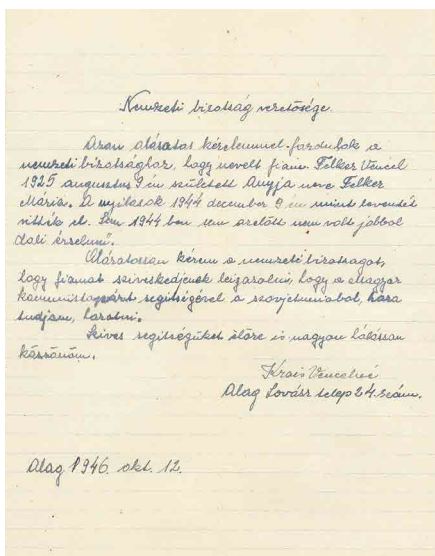 Nemzeti bizotság vezetősége.
Azon alázatos kérelemmel fordulok a
nemzeti bizotsághoz, hogy nevelt fiam Felker Vencel
1925 augusztus 9 én született Anyja neve Felker
Mária. A nyilasok 1944 december 9. én mint leventét
vitték el. Sem 1944 ben sem azelőtt nem volt jobbol
dali érzelmű.
Alázatossan kérem a nemzeti bizotságot,
hogy fiamat sziveskedjenek leigazolni, hogy a Magyar
kommunistapárt segitségével a szovjetunioból, haza
tudjam, hozatni.
Szives segitségüket előre is nagyon hálássan
köszönöm.
Krais Vencelné
Alag Lovász telep 24. szám.
Alag 1946. okt. 12.